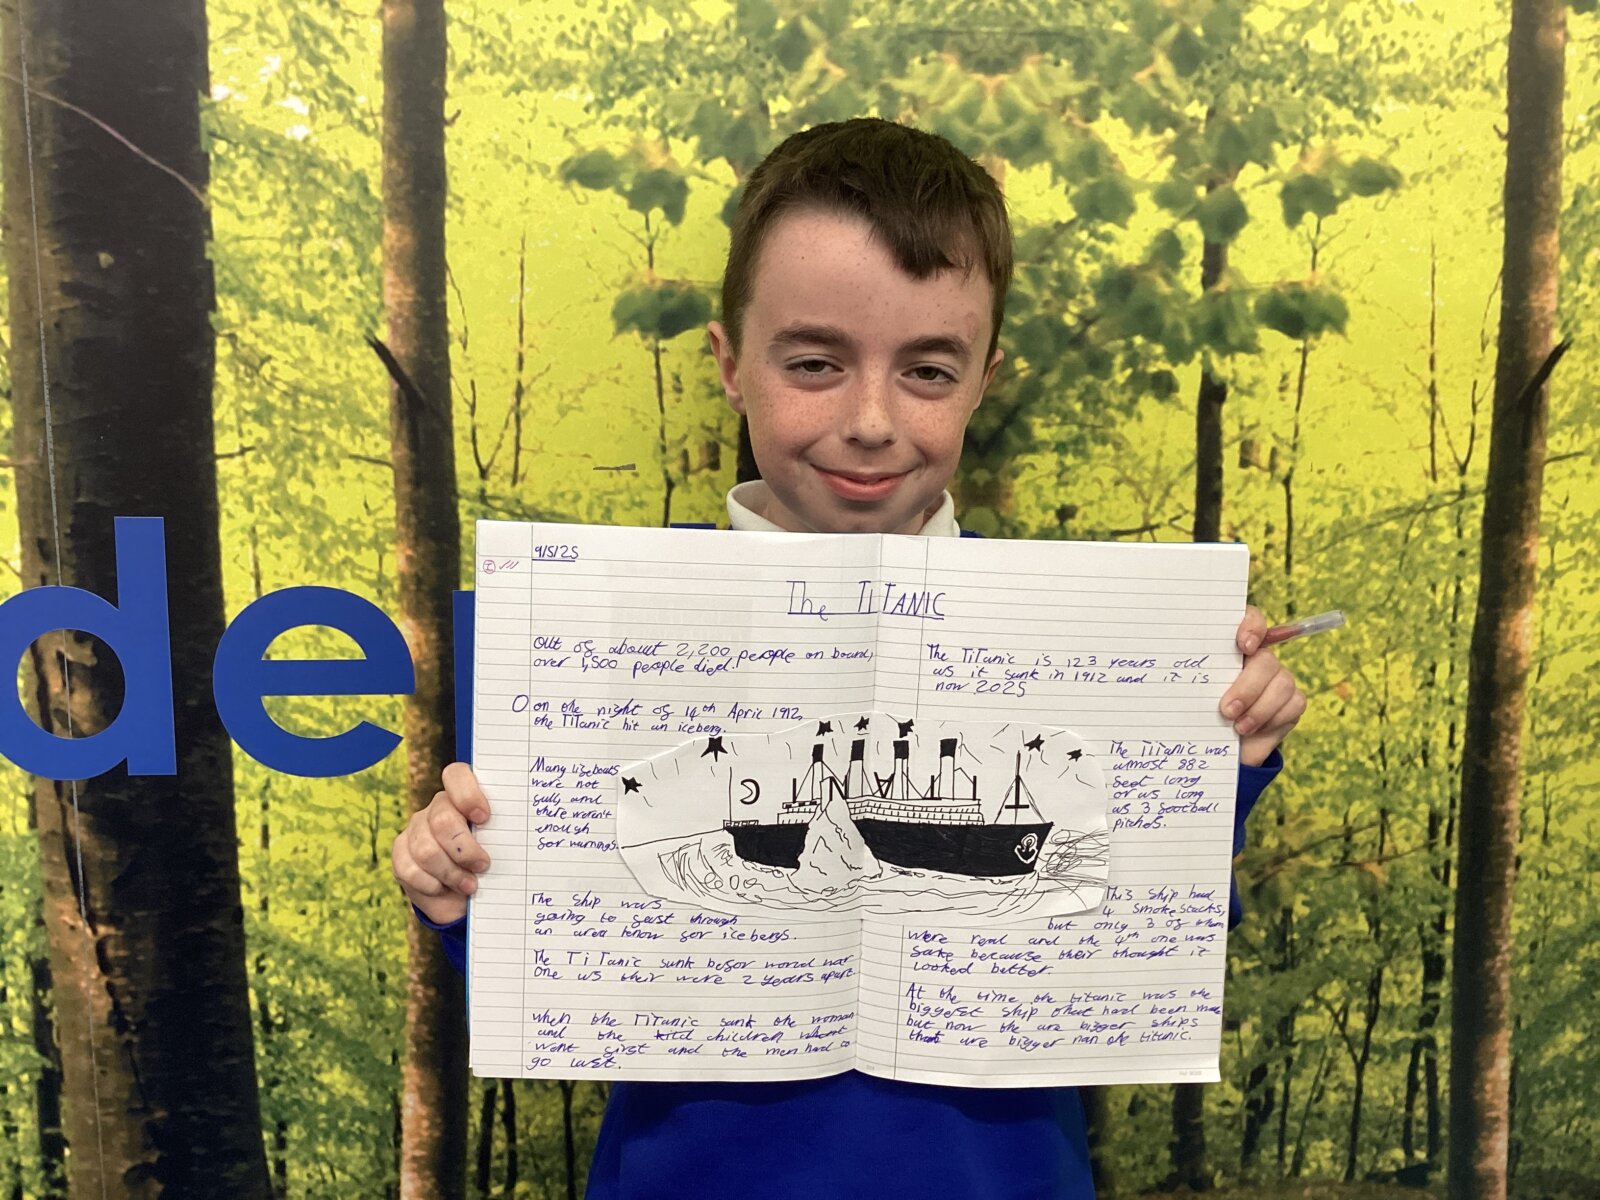 de
9/5/25
The TITANIC
Out of about 2,200 people on board,
over 1,500 people died.
On the night of 14th April 1912,
the Titanic hit an iceberg.
Many lifeboats
were not
full, and
there weren't
enough
for warnings.
The Ship was
going to fast through
an area know for icebergs.
The TiTanic sunk befor world war
One us their were 2 years apart.
when the TiTanic sank the woman
and the children
went first and the men had to
go last.
The TiTanic is 123 years old
us it sunk in 1912 and it is
now 2025
The Titanic was
almost 882
feet long
or us long
us 3 football
pitches.
TITANIC
This ship had
4 smoke stacks,
but only 3 of them
were real and the 4th one was
fake because their thought it
looked better.
At the time the titanic was the
biggerst ship that had been
but now the are bigger ships
that are bigger nan the titanic.